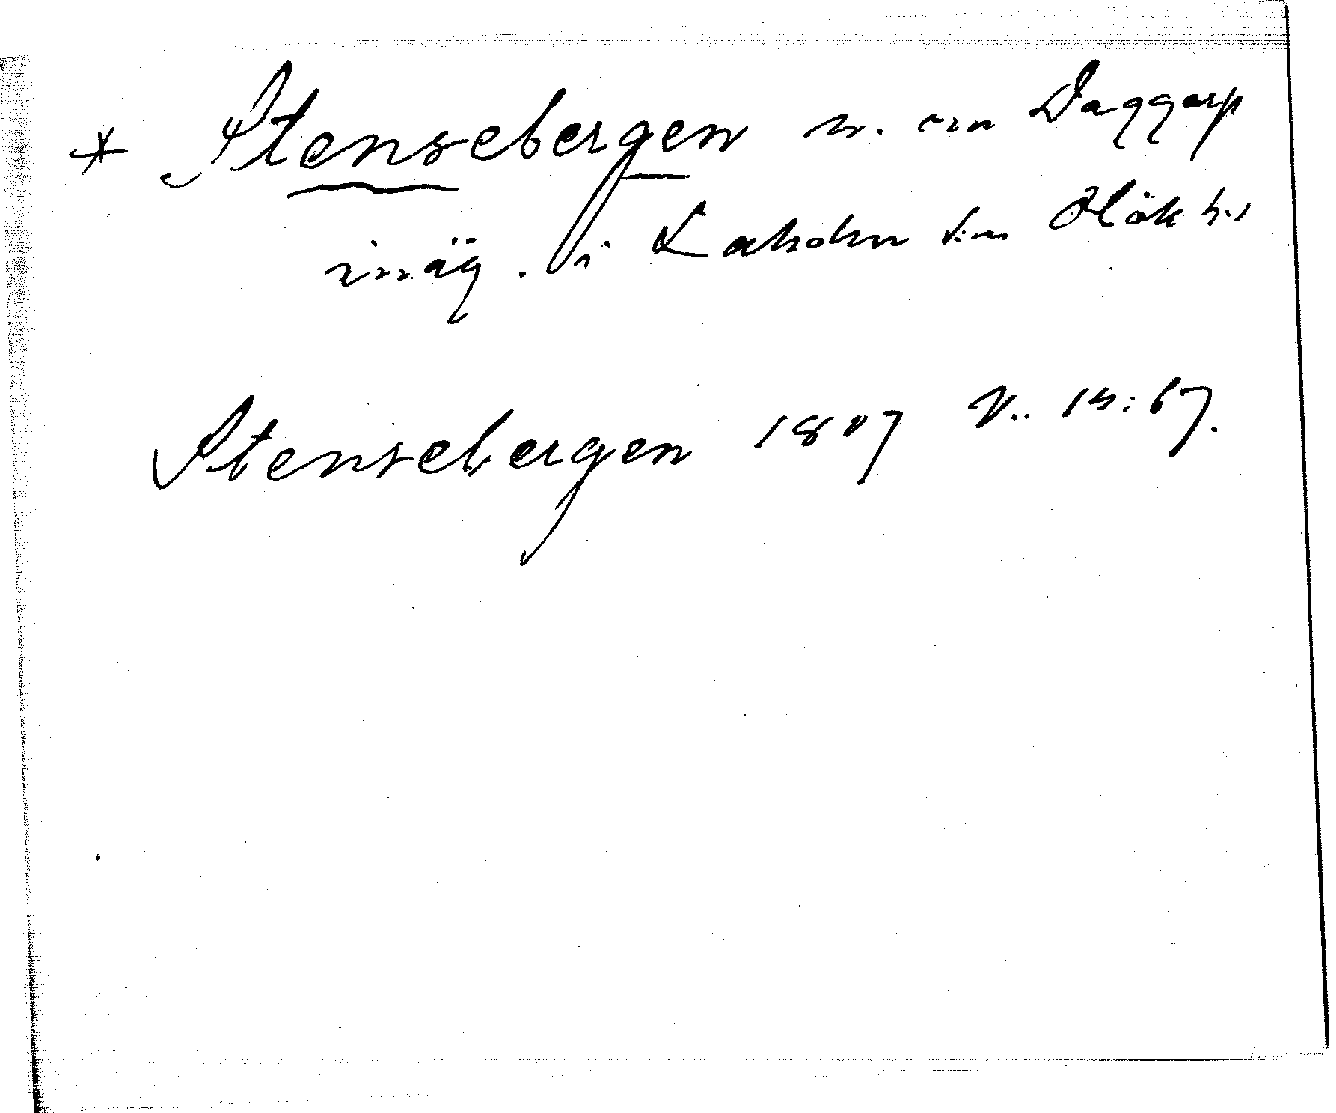 * Stensebergen n. om Daggarp
inäg. i Laholm lm Hök h:d
Stensebergen 1807 V.. 15:67.